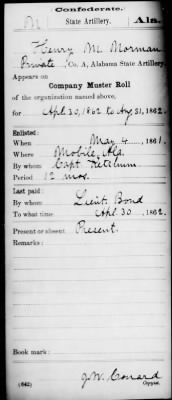 Confederate.
M State Artillery. Ala.
Henry M. Morman
Private, Co. A, Alabama State Artillery.
Appears on
Company Muster Roll
of the organization named above,
for Apl. 30, 1862 to Aug. 31, 1862.
Enlisted:
When May 4, 1861.
Where Mobile, Ala.
By whom Capt. Ketchum
Period 12 mos.
Last paid:
By whom Lieut. Bond
To what time Apl. 30, 1862.
Present or absent Present.
Remarks:
Book mark:
J. W. Conard
(642) Copyist.